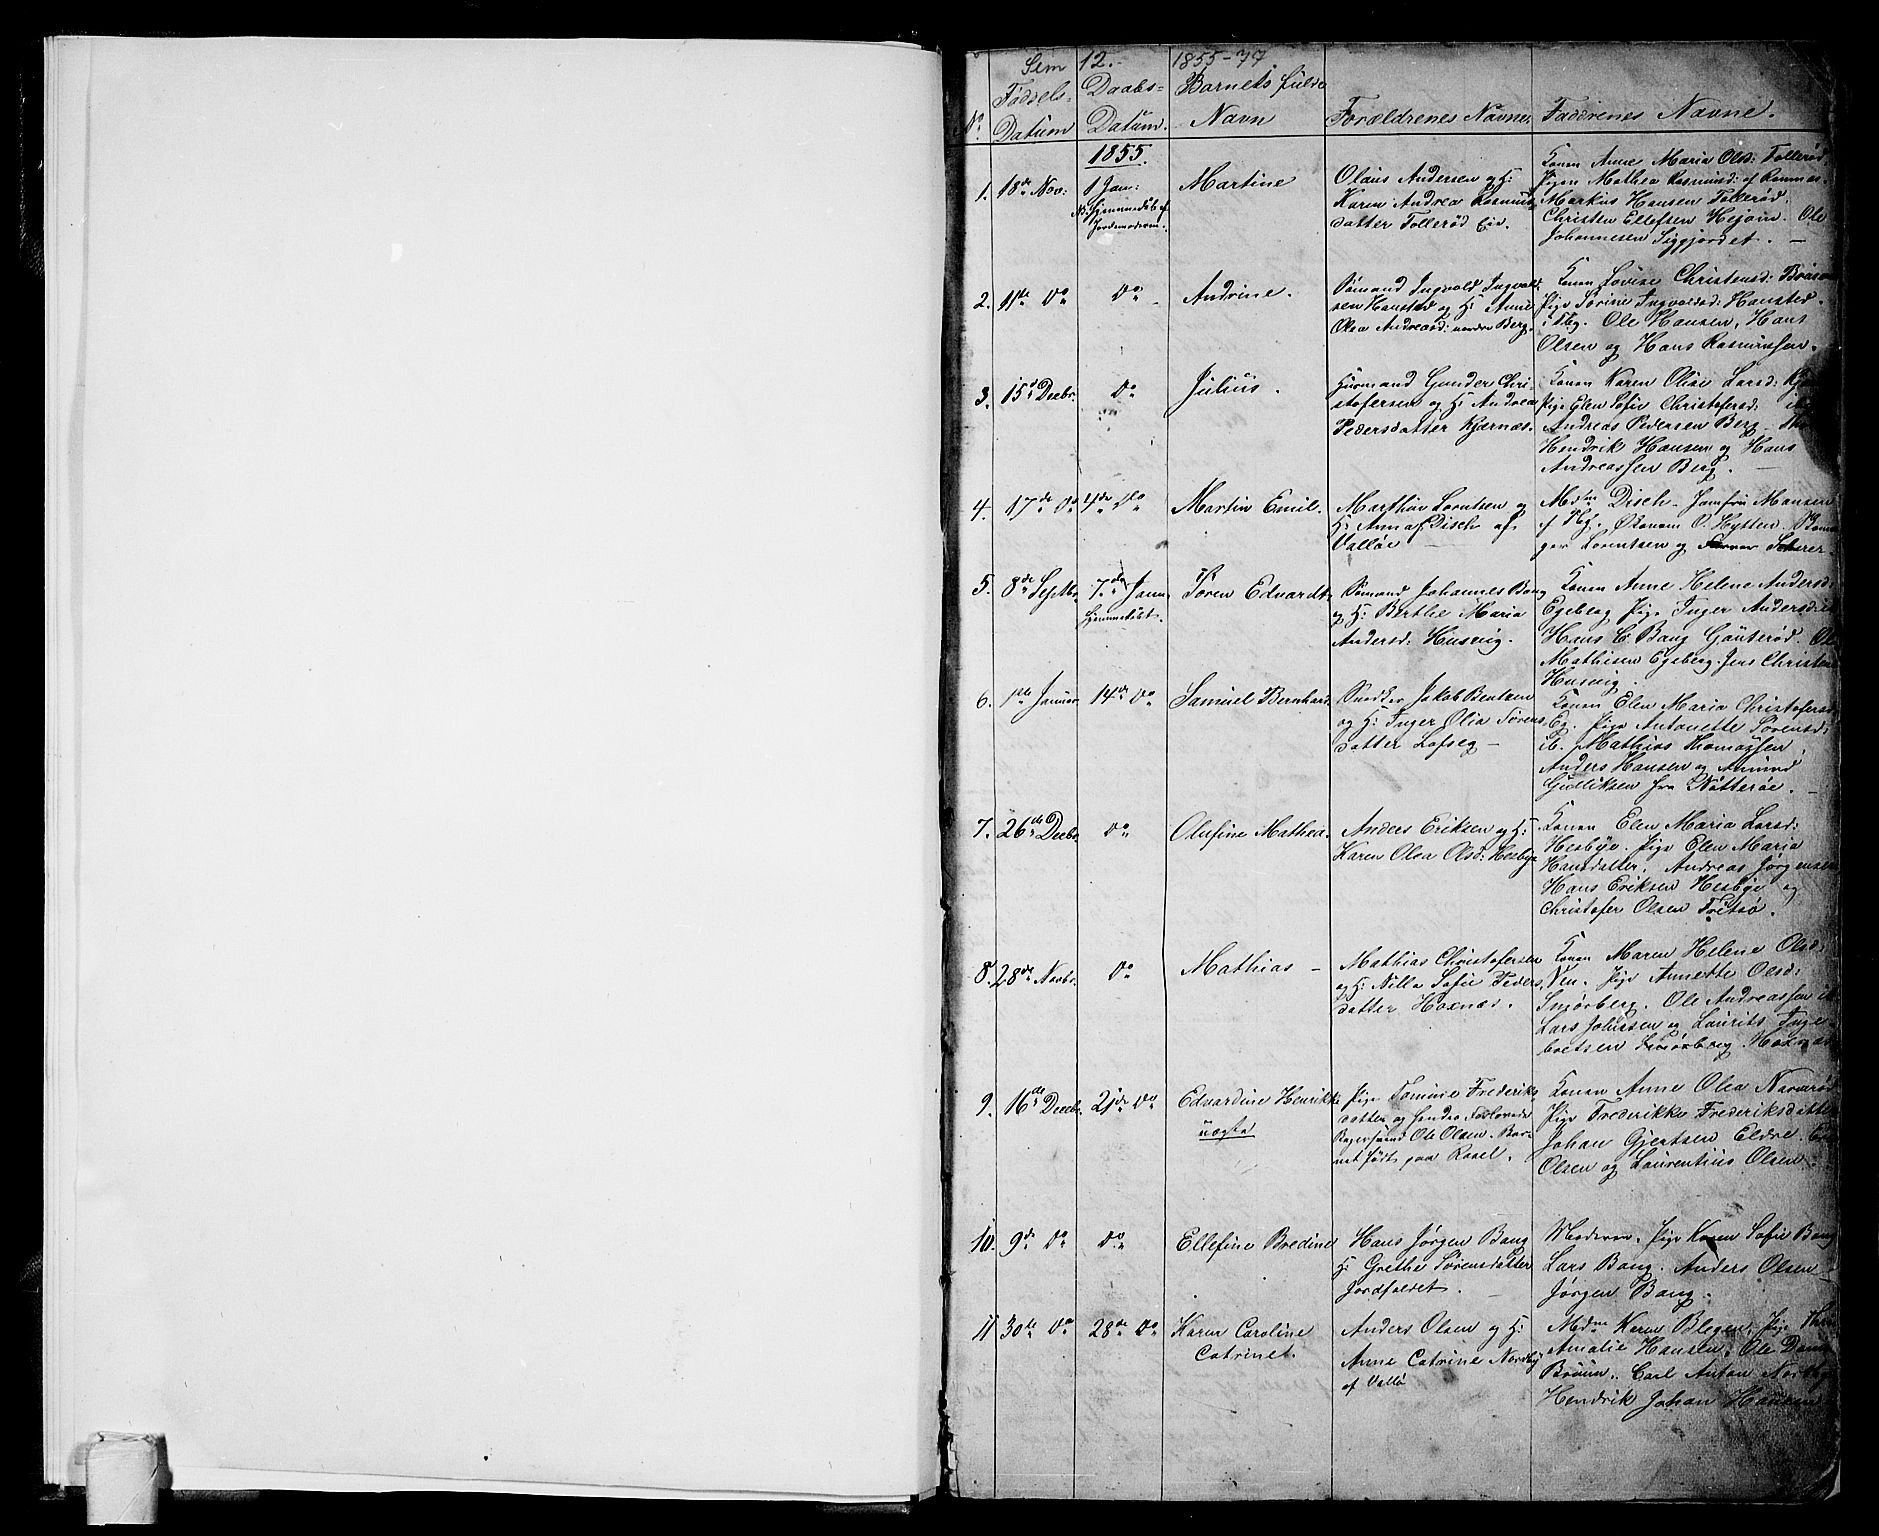 Sem 12. 1855-77
No. Fødsels-Datum Daabs-Datum. Barnets fulde Navn Forældrenes Navne. Faddrenes Navne.
1855.
1. 18de Nov: 1 Jan: Hjemmedøb af Jordemoderen. Martine
Olaus Andersen og H:
Karen Andrea Rasmus
datter Tollerød Eie.
Konen Anne Maria Olsd: Tollerød
Pigen Mathea Rasmusd: af
Markus Hansen Tollerød.
Christen Ellefsen Ole
Johannesen
2. 11te Do Do Andrine.
Sømand Ingvald Ingvald
sen Hansted og H: Anne
Olea Andreasd: nordre Berg.
Konen Lovise Christensd:
Pige Sørine Ingvaldsd: Hansted.
i Tbg. Ole Hansen, Hans
Olsen og Hans Rasmussen.
3. 15de Decbr. Do Julius.
Huusmand Gunder Chri-
stofersen og H: Andrea
Pedersdatter Kjærnæs.
Konen Karen Olise Larsd:
Pige Elen Sofie Christofersd:
Andreas Pedersen Berg.
Hendrik Hansen og Hans
Andreassen Berg.
4. 17de Do 4de Do Martin Emil.
Marthin Lorentsen og
H: Anna f. Disch af
Valløe
Mdme Disch. Jomfru Hansen
af Tbg. Økonom O. Hytten.
ger Lorentsen og
5. 8de Septbr 7de Janu. hjemmedøbt. Søren Edvardt.
Sømand Johannes Bang
og H: Berthe Maria
Andersd: Husvig.
Konen Anne Helene Andersd:
Egeberg Pige Inger Andersd: ib
Hans C. Bang Gauterød. Ole
Mathisen Egeberg. Jens Christens
Husvig.
6. 1ste Januar 14de Do Samuel Bernhard.
Snedker Jakob Bentsen
og H: Inger Olia Sørens
datter Lofseg
Konen Elen Maria Christofersd:
Eg. Pige Antonette Sørensd:
ib. Mathias Thomassen.
Anders Hansen og Amund
Gulliksen fra Nøtterøe.
7. 26de Decbr Do Olufine Mathea.
Anders Eriksen og H:
Karen Olea Olsd: Hesbye
Konen Elen Maria Larsd:
Hesbye. Pige Elen Maria
Hansdatter. Andreas Jørgensen
Hans Eriksen Hesbye og
Christofer Olsen Fritsø.
8. 28de Novbr. Do Mathias
Mathias Christofersen
og H: Nilla Sofie Peders
datter Hoxnæs.
Konen Maren Helene Olsd:
Ven. Pige Annette Olsd:
Smørberg. Ole Andreassen ib
Lars Johnsen og Laurits Inge-
bretsen Smørberg Hoxnæs
9. 16de Decbr. 21de Do Edvardine Henrikke
uægte
Pige Tomine Frederiks
datter og hendes Forlovede
Bøgersvend Ole Olsen. Bar-
net født paa Ravel.
Konen Anne Olea Narverød
Pige Frederikke Frederiksdatter
Johan Gjertsen Eldre.
Olsen og Laurentius Olsen.
10. 9de Do Do Ellefine Bredine
Hans Jørgen Bang
H: Grethe Sørensdatter
Jordfaldet.
Moderen. Pige Karen Sofie Bang
Lars Bang. Anders Olsen
Jørgen Bang.
11 30te Do 28de Do Karen Caroline
Catrinet.
Anders Olsen og H:
Anne Catrine Nordby
af Vallø
Mdme Karen Blegen. Pige
Amalie Hansen. Ole
Bruun. Carl Anton Nordby
Hendrik Johan Hansen